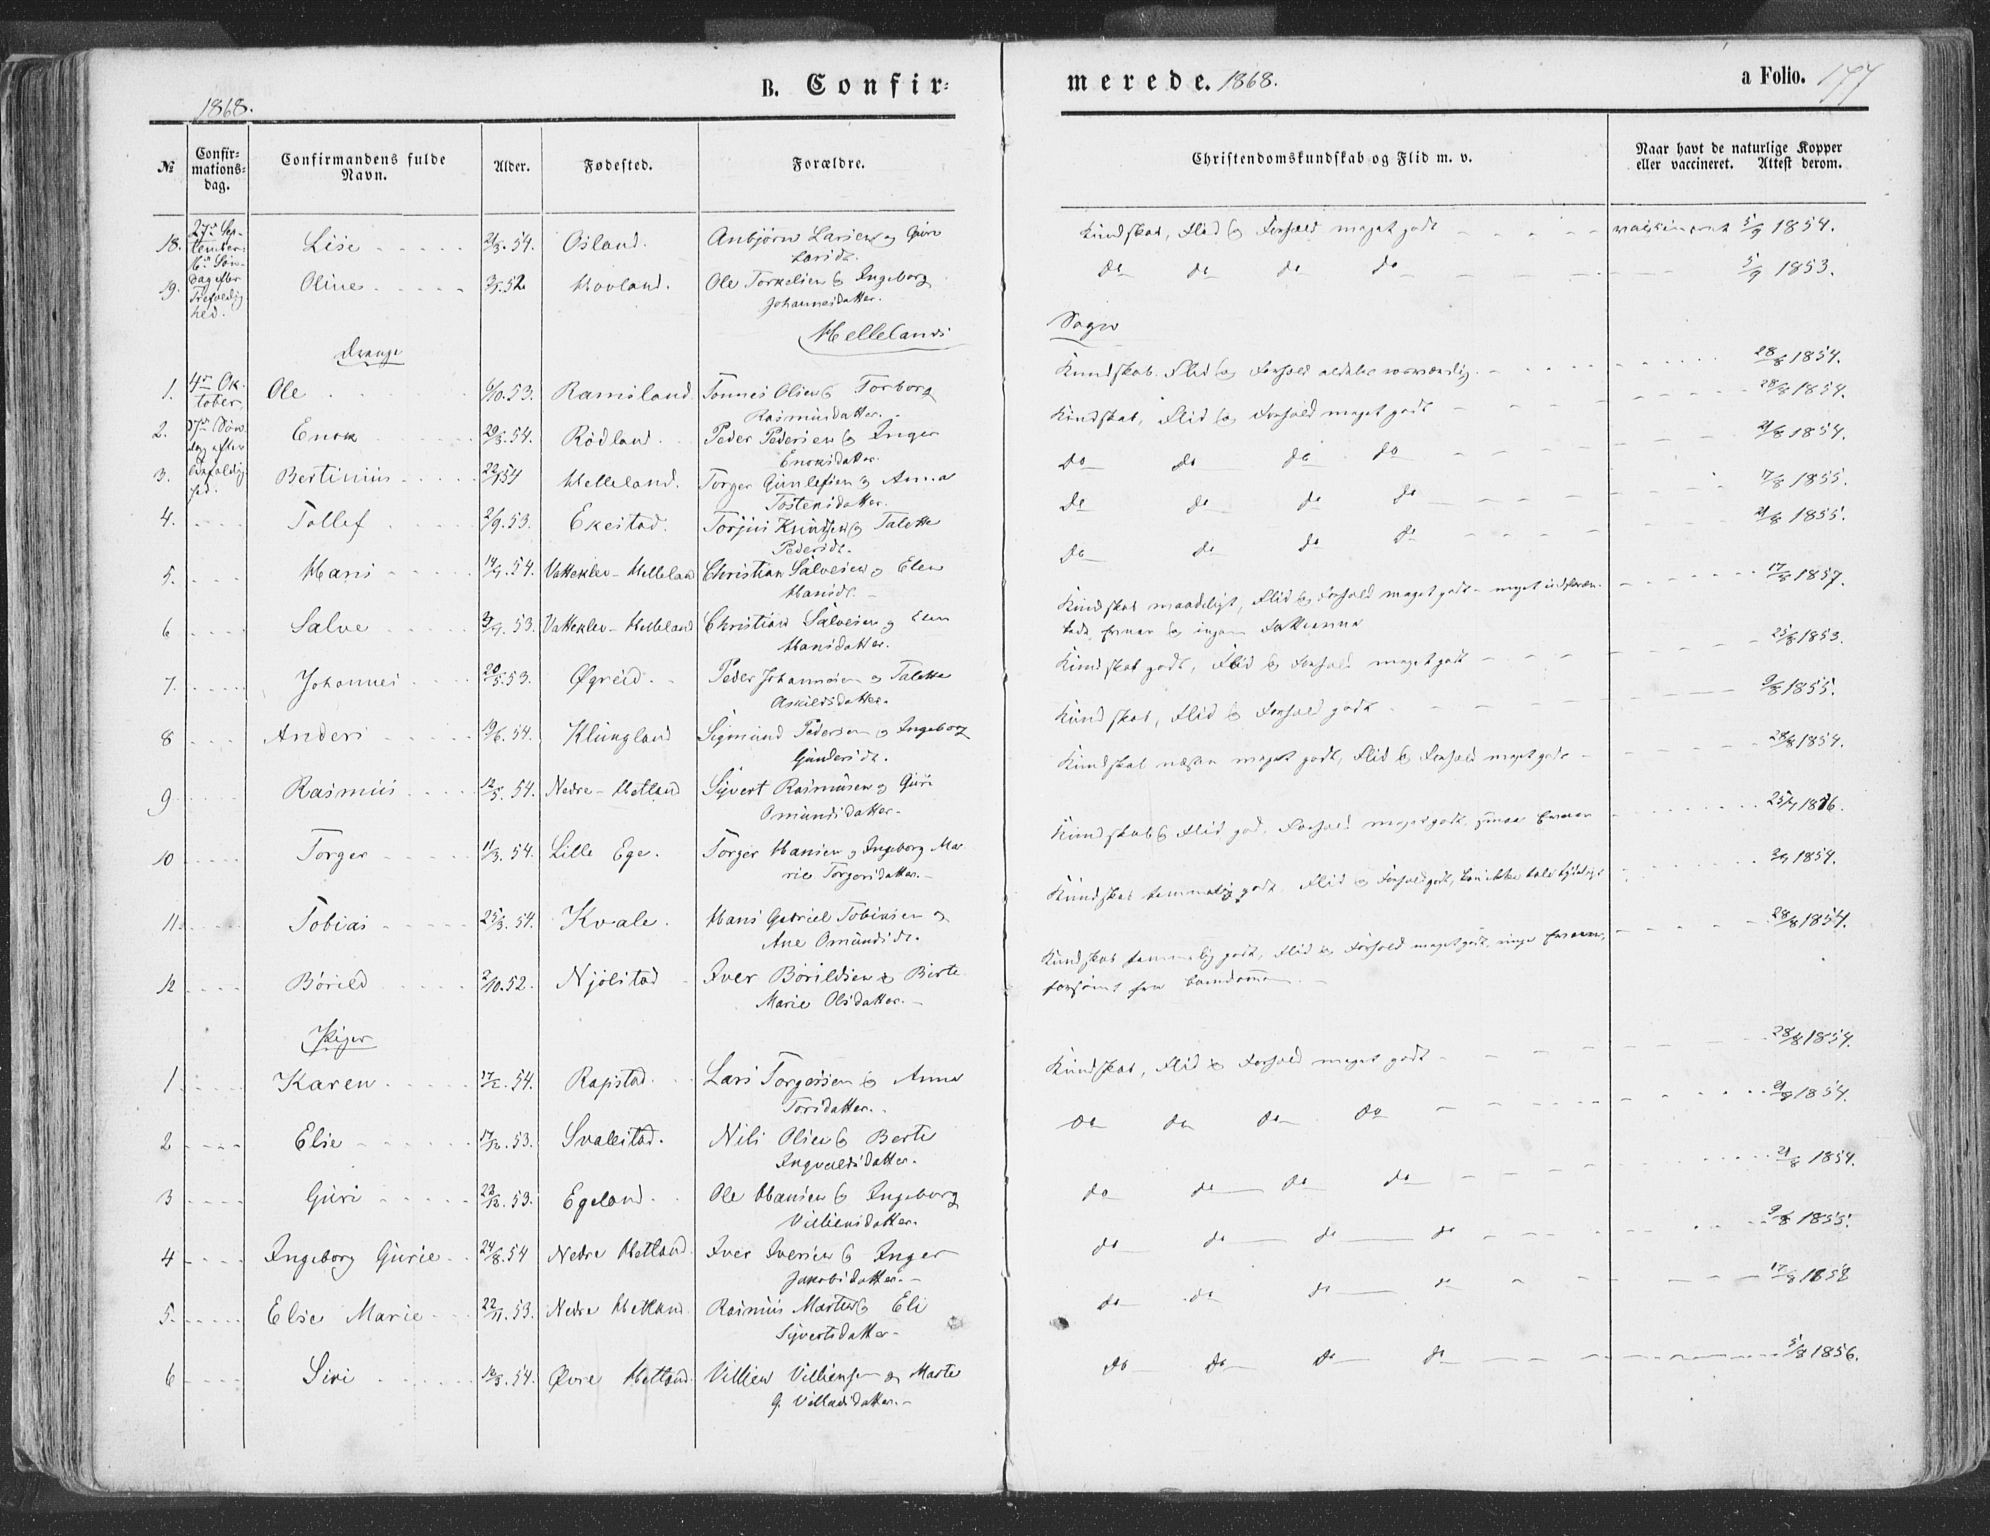 1868.
B. Confir-
merede. 1868.
a Folio. 177
№
Confirmationsdag.
Confirmandens fulde Navn.
Alder.
Fødested.
Forældre.
Christendomskundskab og Flid m. v.
Naar havt de naturlige Kopper eller vaccineret. Attest derom.
18. 27de September Lise 54. Osland. Anbjørn Larsen og Guri Larsdt. Kundskab, Flid og Forhold meget godt vaksineret 5/9 1854.
16de Søndag efter Trefoldighed.
19. Oline 52 Hovland. Ole Torkelsen og Ingeborg Johannesdatter. do do do do 5/9 1853.
Hellelands Sogn
Drenge
1. 4de Oktober, Ole 6/10. 53. Ramsland. Tønnes Olsen & Torborg Rasmusdatter. Kundskab. Flid og Forhold 28/8 1854.
17de Søndag efter
2. Enok 29/3. 54. Rødland. Peder Pedersen & Inger Enoksdatter. Kundskab, Flid og Forhold meget godt 28/8 1854.
3. Bertinius 54 Helleland. Torger Gunlefsen og Anna Tostensdatter. do do do do 21/8 1854.
4. Tollef 2/9. 53. Ekestad. Torjus Knudsen & Talette Pedersdt. do do do do 17/8 1855.
5. Hans 54. Vatteklev - Helleland Christian Salvesen og Elen Hansdt. do do do do 21/8 1855.
6 Salve 53. Vatteklev - Helleland Christian Salvesen og Elen Hansdatter. Kundskab maadeligt, Flid & Forhold meget godt - meget 17/8 1857.
7. Johannes 20/5. 53. Øgreid. Peder Johannesen og Talette Askildsdatter. Kundskab godt, Flid & Forhold meget godt 25/8 1853.
8 Anders 19/6. 54. Klungland Sigmund Pedersen og Ingeborg Gundersdt. Kundskab, Flid & Forhold godt 9/8 1855.
9 Rasmus 12/5. 54. Nedre-Hetland Syvert Rasmusen og Guri Omundsdatter. Kundskab næsten meget godt, Flid & Forhold meget godt 28/8 1854.
10 Torger 11/3. 54. Lille Ege. Torger Hansen og Ingeborg Marie Torgersdatter. Kundskab & Flid god, Forhold meget godt,
11. Tobias 25/3. 54. Kvale. Hans Gabriel Tobiasen og Ane Omundsdt. Kundskab temmelig godt, Flid og Forhold godt, 1854.
12 Børild 2/10. 52. Njølstad Iver Børildsen & Birte Marie Olsdatter. Kundskab temmelig godt, Flid & Forhold meget godt, 28/8 1854.
forsømt fra Barndommen.
Piger
1 Karen 17/2. 54. Rapstad. Lars Torgersen & Anna Torsdatter. Kundskab, Flid & Forhold meget godt 28/8 1854.
2 Elise 17/12. 53. Svalestad. Nils Olsen & Berte Ingvaldsdatter. do do do do 1854.
3 Guri 53. Egeland. Ole Hansen & Ingeborg Villiensdatter. do do do do 21/8 1854.
4 Ingeborg Gurie 24/8. 54 Nedre Hetland. Iver Iversen & Inger Jakobsdatter. do do do do 9/8 1855.
5. Else Marie 22/11. 53. Nedre Hetland. Rasmus Marten & Eli Syvertsdatter. do do do do 1858
6 Siri 54. Øvre Hetland. Villien Villiensen og Marte G. Villadsdatter. do do do do 5/8 1856.